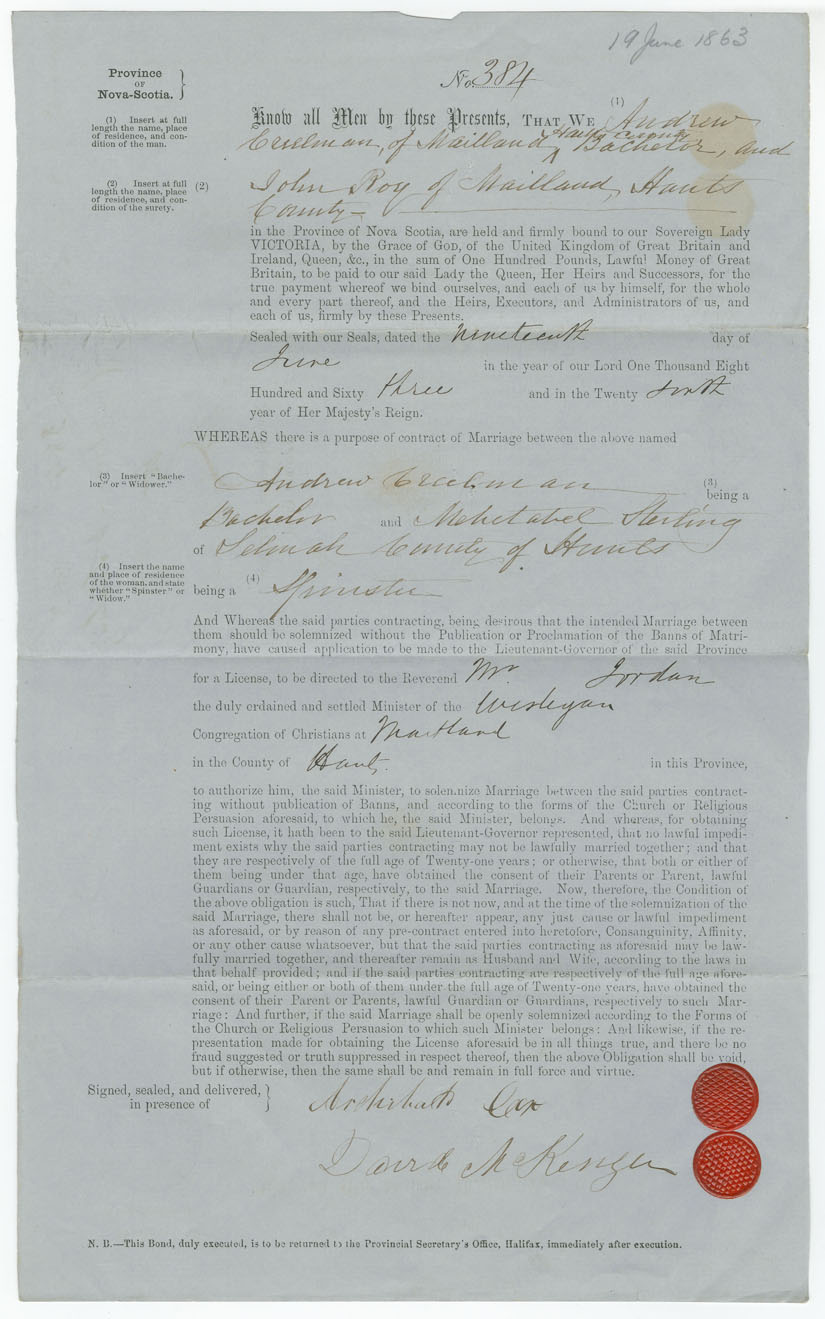 19 June 1863
Province
OF
Nova-Scotia.
No. 384
(1) Insert at full
length the name, place
of residence, and con-
dition of the man.
Know all Men by these Presents, THAT, WE (1) Andrew
Creelman, of Maitland, Hants County Bachelor, and
(2) Insert at full
length the name, place
of residence, and con-
dition of the surety.
(2) John Roy of Maitland, Hants
County
in the Province of Nova Scotia, are held and firmly bound to our Sovereign Lady
VICTORIA, by the Grace of GOD, of the United Kingdom of Great Britain and
Ireland, Queen, &c., in the sum of One Hundred Pounds, Lawful Money of Great
Britain, to be paid to our said Lady the Queen, Her Heirs and Successors, for the
true payment whereof we bind ourselves, and each of us by himself, for the whole
and every part thereof, and the Heirs, Executors, and Administrators of us, and
each of us, firmly by these Presents.
Sealed with our Seals, dated the nineteenth day of
June in the year of our Lord One Thousand Eight
Hundred and Sixty three and in the Twenty sixth
year of Her Majesty's Reign.
WHEREAS there is a purpose of contract of Marriage between the above named
(3) Insert "Bache-
lor" or "Widower."
Andrew Creelman (3) being a
Bachelor and Mehetabel Sterling
of Selmah County of Hants
(4) Insert the name
and place of residence
of the woman, and state
whether "Spinster" or
"Widow."
being a (4) Spinster
And Whereas the said parties contracting, being desirous that the intended Marriage between
them should be solemnized without the Publication or Proclamation of the Banns of Matri-
mony, have caused application to be made to the Lieutenant-Governor of the said Province
for a License, to be directed to the Reverend Mr Jordan
the duly ordained and settled Minister of the Wesleyan
Congregation of Christians at Maitland
in the County of Hants. in this Province,
to authorize him, the said Minister, to solemnize Marriage between the said parties contract-
ing without publication of Banns, and according to the forms of the Church or Religious
Persuasion aforesaid, to which he, the said Minister, belongs. And whereas, for obtaining
such License, it hath been to the said Lieutenant-Governor represented, that no lawful impedi-
ment exists why the said parties contracting may not be lawfully married together; and that
they are respectively of the full age of Twenty-one years; or otherwise, that both or either of
them being under that age, have obtained the consent of their Parents or Parent, lawful
Guardians or Guardian, respectively, to the said Marriage. Now, therefore, the Condition of
the above obligation is such, That if there is not now, and at the time of the solemnization of the
said Marriage, there shall not be, or hereafter appear, any just cause or lawful impediment
as aforesaid, or by reason of any pre-contract entered into heretofore, Consanguinity, Affinity,
or any other cause whatsoever, but that the said parties contracting as aforesaid may be law-
fully married together, and thereafter remain as Husband and Wife, according to the laws in
that behalf provided; and if the said parties contracting are respectively of the full age afore-
said, or being either or both of them under the full age of Twenty-one years, have obtained the
consent of their Parent or Parents, lawful Guardian or Guardians, respectively to such Mar-
riage: And further, if the said Marriage shall be openly solemnized according to the Forms of
the Church or Religious Persuasion to which such Minister belongs: And likewise, if the re-
presentation made for obtaining the License aforesaid be in all things true, and there be no
fraud suggested or truth suppressed in respect thereof, then the above Obligation shall be void,
but if otherwise, then the same shall be and remain in full force and virtue.
Signed, sealed, and delivered,
in presence of
Archibald Cox
David McKenzie
N. B.—This Bond, duly executed, is to be returned to the Provincial Secretary's Office, Halifax, immediately after execution.